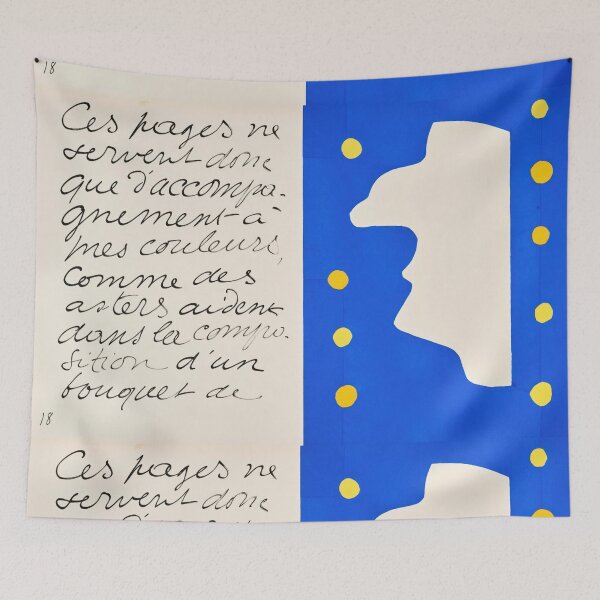 18
Ces pages ne
servent donc
que d'accompa-
gnement à
mes couleurs,
comme des
asters aident
dans la compo-
sition d'un
bouquet de
18
Ces pages ne
servent donc